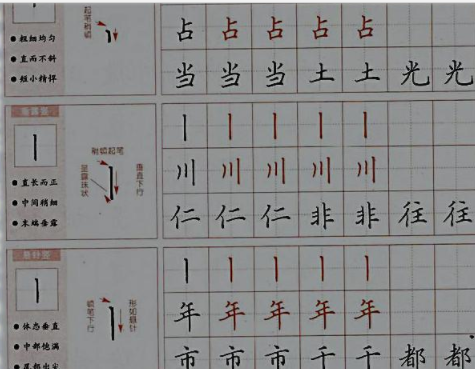 起笔稍顿
● 粗细均匀
● 直而不斜
● 短小精悍
占 占 占 占 占
当 当 当 土 土 光 光
垂露竖
稍顿起笔
垂直下行
呈露珠状
● 直长而正
● 中间稍细
● 末端垂露
丨 丨 丨 丨 丨
川 川 川 川 川
仁 仁 仁 非 非 往 往
悬针竖
顿笔下行
形如悬针
● 体态垂直
● 中部饱满
● 尾部出尖
丨 丨 丨 丨 丨
年 年 年 年 年
市 市 市 千 千 都 都